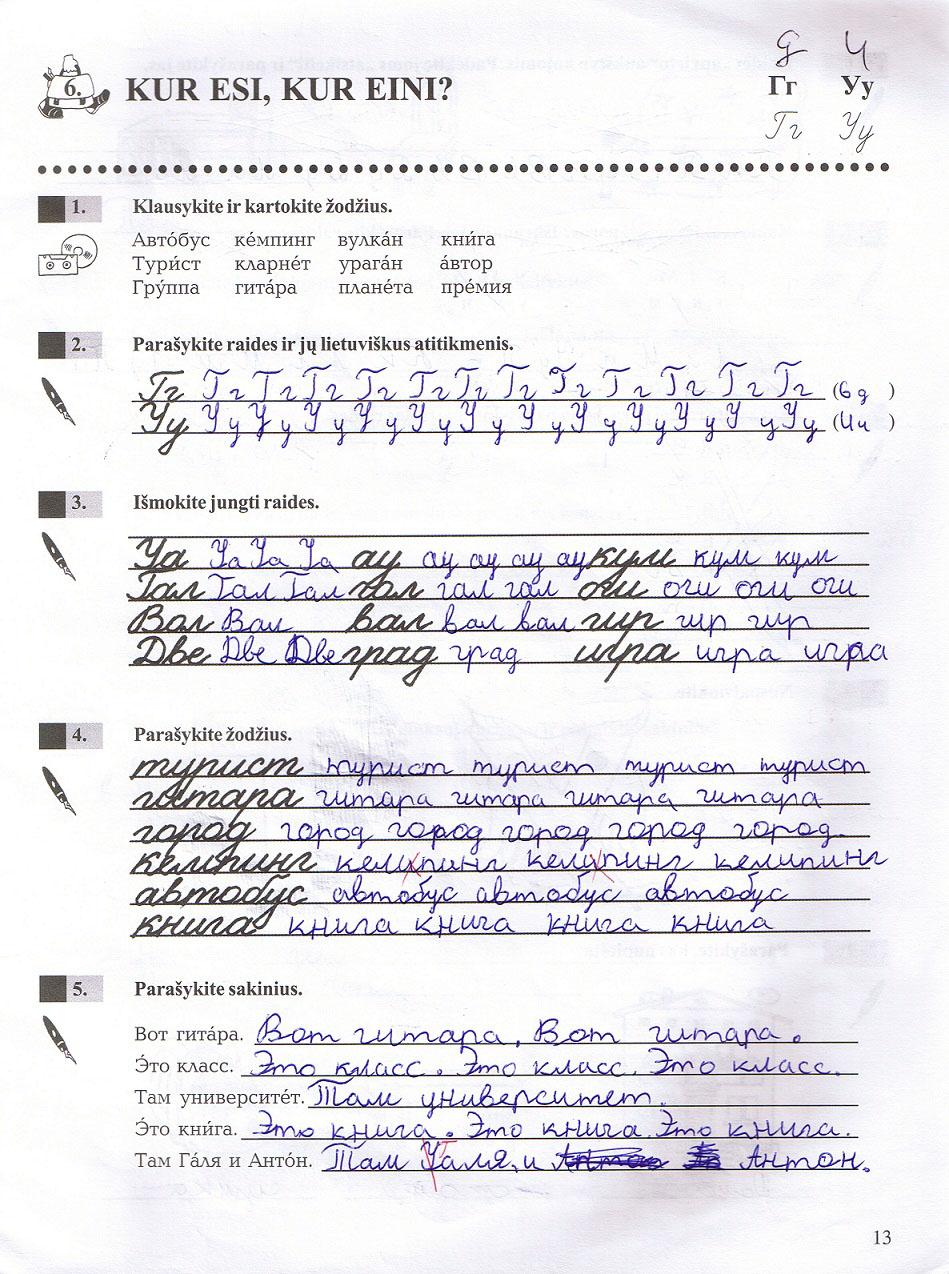 g Ч
6. KUR ESI, KUR EINI? Гг Уу
Гг Уу
1. Klausykite ir kartokite žodžius.
Автóбус кéмпинг вулкáн кни́га
Тури́ст кларнéт урагáн áвтор
Грýппа гитáра планéта прéмия
2. Parašykite raides ir jų lietuviškus atitikmenis.
Гг Гг Гг Гг Гг Гг Гг Гг Гг Гг Гг Гг Гг (G g )
Уу Уу Уу Уу Уу Уу Уу Уу Уу Уу Уу Уу Уу (U u )
3. Išmokite jungti raides.
Уа Уа Уа Уа ау ау ау ау ау кум кум кум
Гал Гал Гал гал гал гал оги оги оги оги
Вал Вал вал вал вал гир гир гир
Две Две Две град град игра игра игра
4. Parašykite žodžius.
турист турист турист турист турист
гитара гитара гитара гитара гитара
город город город город город город.
кемпинг кемпинг кемпинг кемпинг
автобус автобус автобус автобус
книга книга книга книга книга
5. Parašykite sakinius.
Вот гитáра. Вот гитара, Вот гитара.
Э́то класс. Это класс. Это класс. Это класс.
Там университéт. Там университет.
Э́то кни́га. Это книга. Это книга. Это книга.
Там Гáля и Антóн. Там Уаля, и Антон.
13